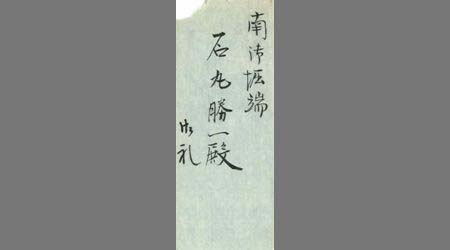 南御堀端
石丸勝一殿
御礼